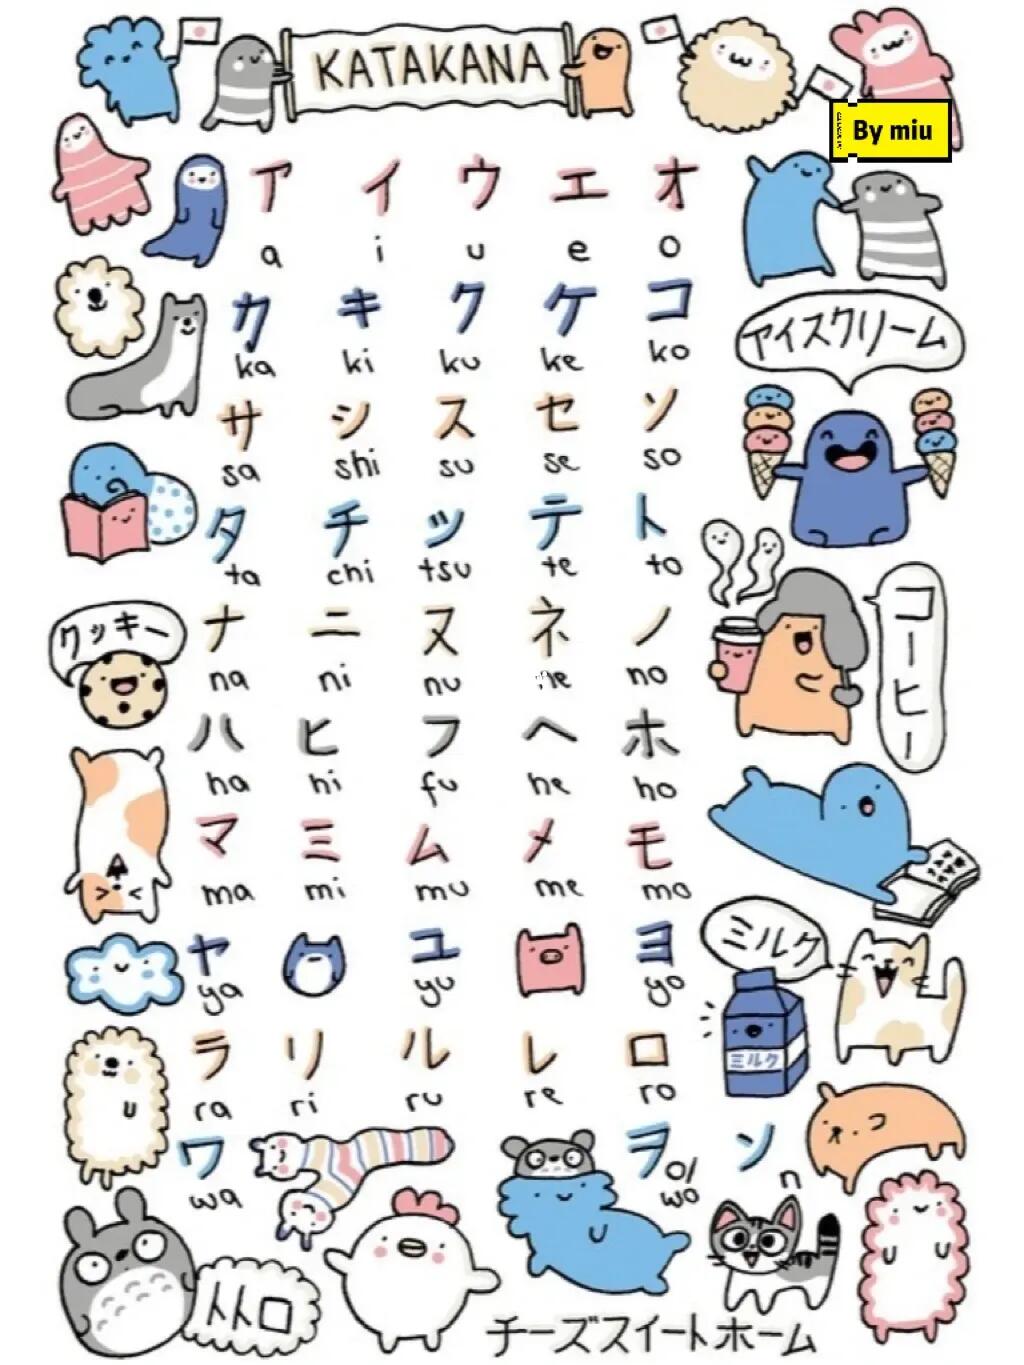 KATAKANA
By miu
ア イ ウ エ オ
a i u e o
カ キ ク ケ コ
ka ki ku ke ko
アイスクリーム
サ シ ス セ ソ
sa shi su se so
タ チ ツ テ ト
ta chi tsu te to
クッキー
ナ ニ ヌ ネ ノ
na ni nu ne no
コーヒー
ハ ヒ フ ヘ ホ
ha hi fu he ho
マ ミ ム メ モ
ma mi mu me mo
ミルク
ヤ ユ ヨ
ya yu yo
ミルク
ラ リ ル レ ロ
ra ri ru re ro
ワ ヲ ン
wa o/wo n
トトロ
チーズスイートホーム